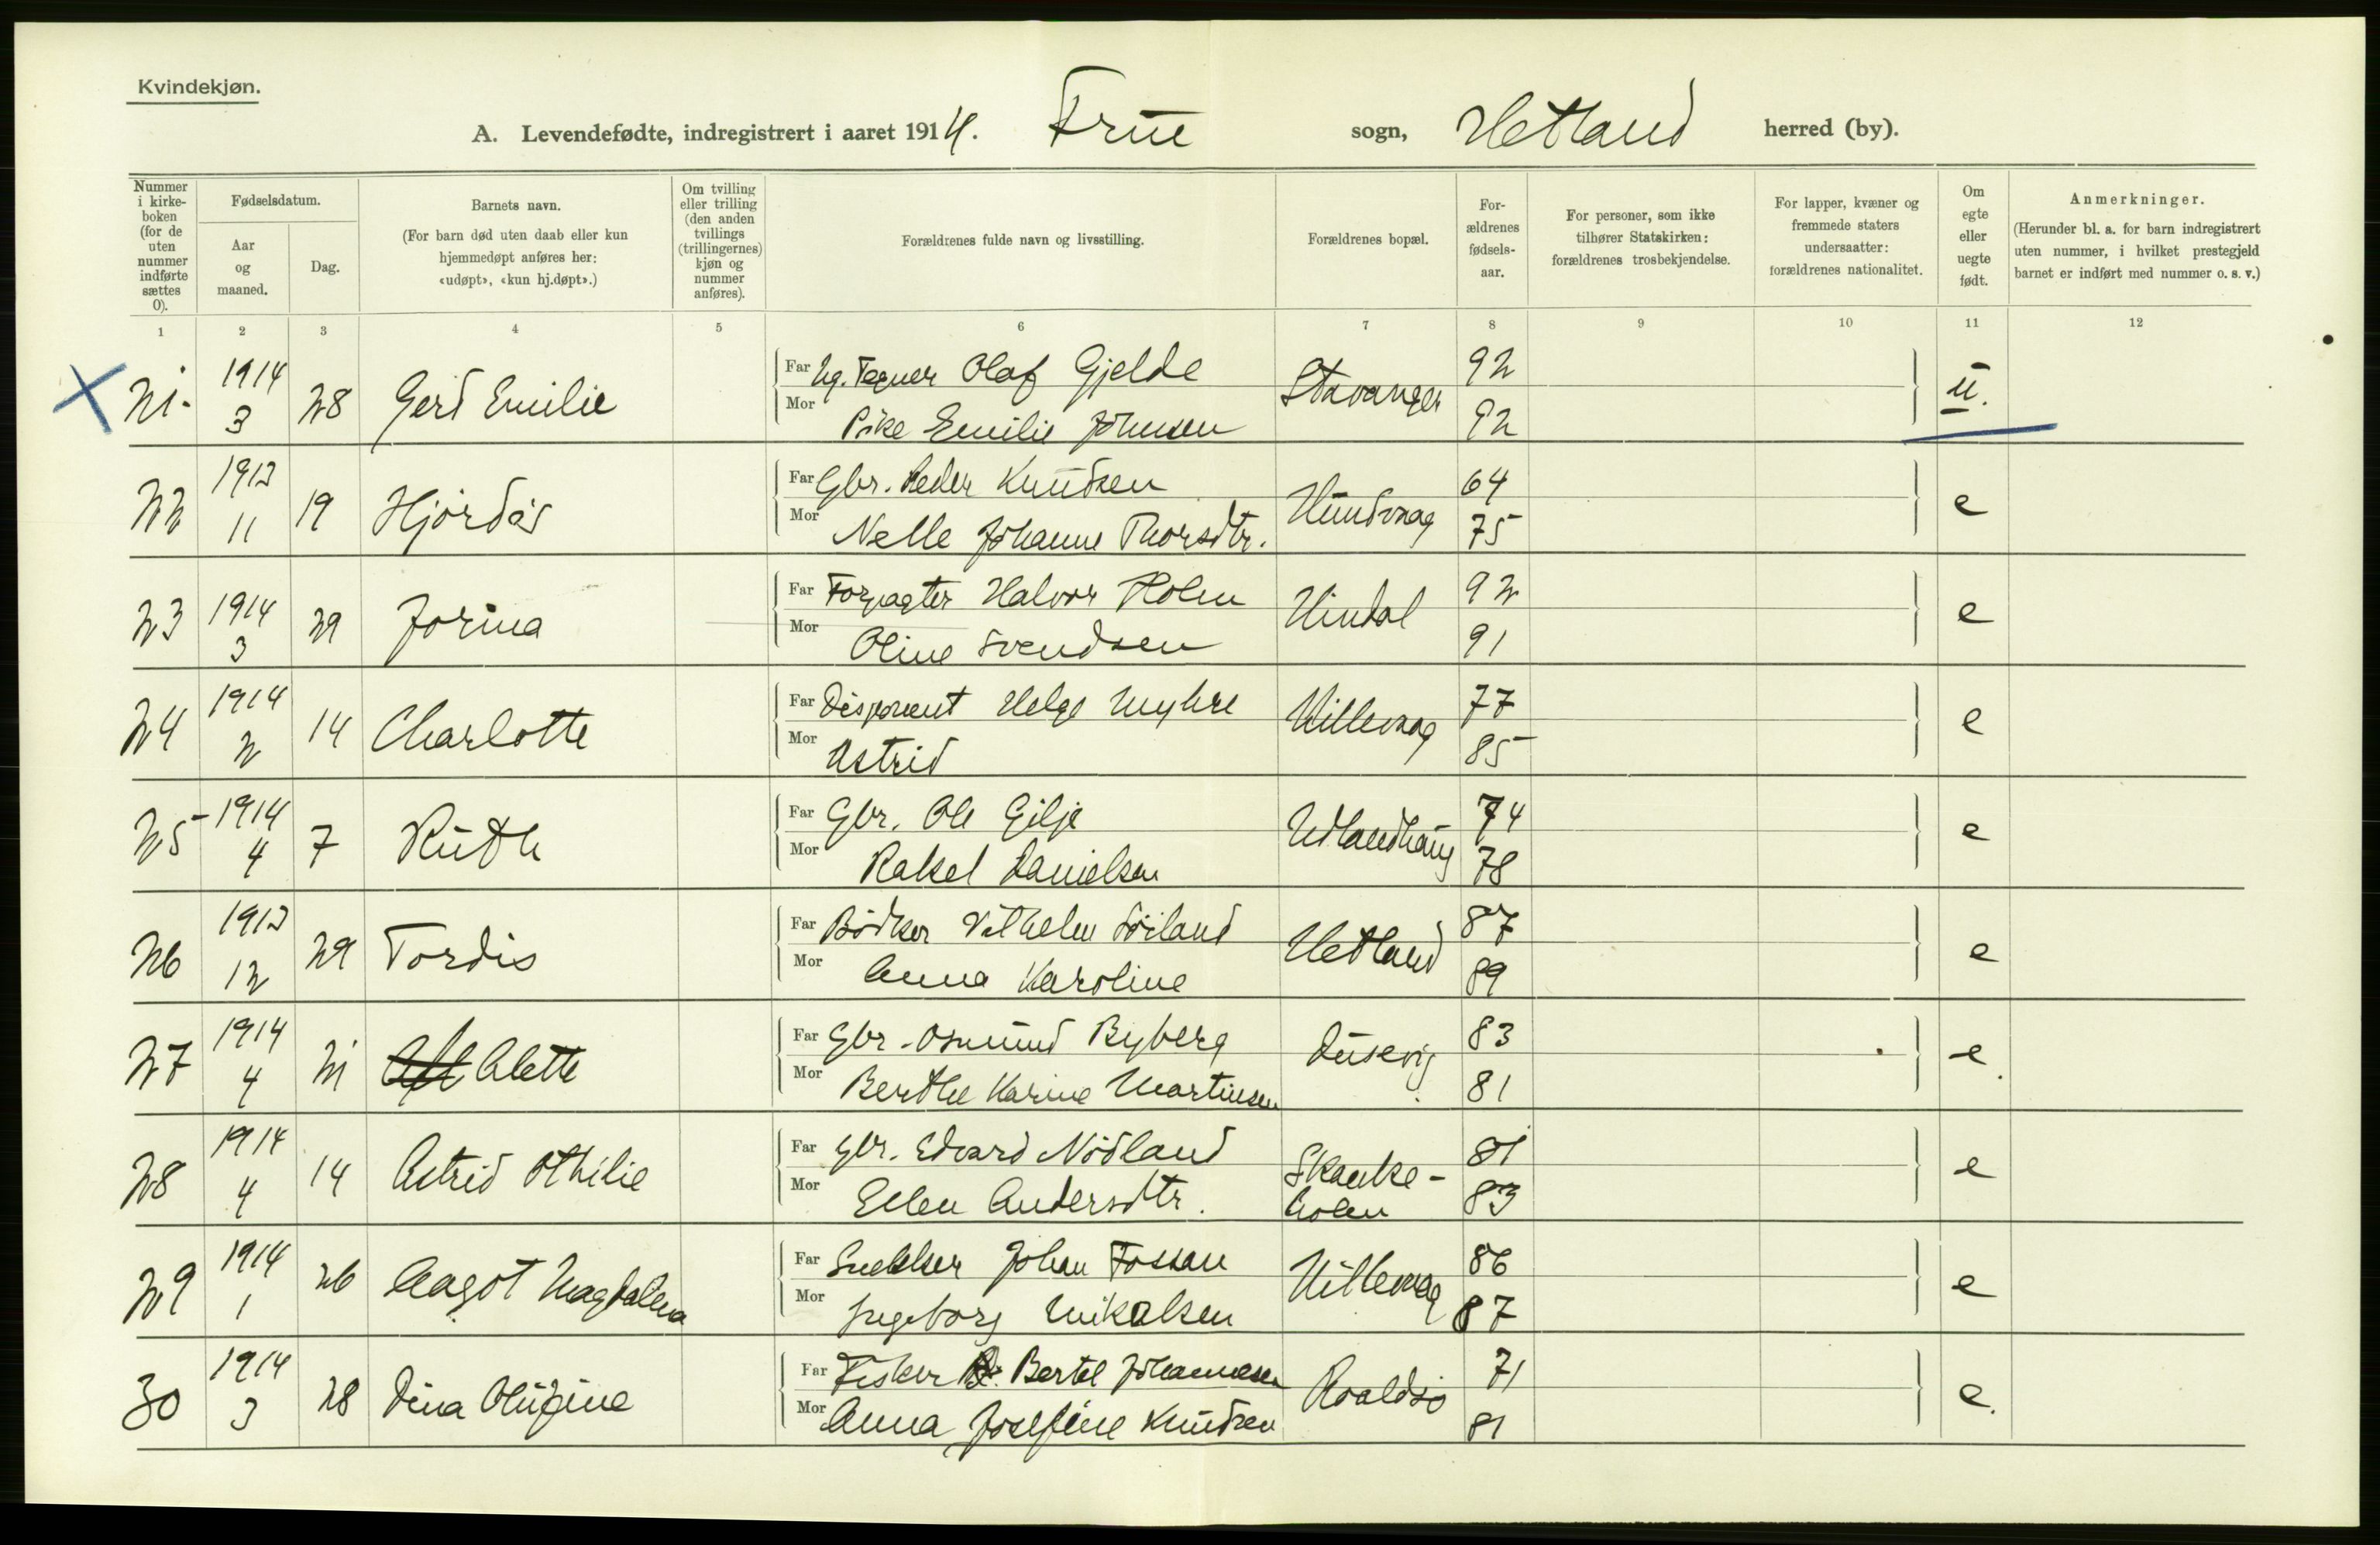 Kvindekjøn.
A. Levendefødte, indregistrert i aaret 1914. Frue sogn, Hetland herred (by).
Nummer i kirke-boken (for de uten nummer indførte sættes 0).
Fødselsdatum.
Aar og maaned.
Dag.
Barnets navn.
(For barn død uten daab eller kun hjemmedøpt anføres her: «udøpt», «kun hj.døpt».)
Om tvilling eller trilling (den anden tvillings (trillingernes) kjøn og nummer anføres).
Forældrenes fulde navn og livsstilling.
Forældrenes bopæl.
For-ældrenes fødsels-aar.
For personer, som ikke tilhører Statskirken: forældrenes trosbekjendelse.
For lapper, kvæner og fremmede staters undersaatter: forældrenes nationalitet.
Om egte eller uegte født.
Anmerkninger.
(Herunder bl. a. for barn indregistrert uten nummer, i hvilket prestegjeld barnet er indført med nummer o. s. v.)
1 2 3 4 5 6 7 8 9 10 11 12
21. 1914 3 28 Gerd Emilie
Far Ug. Tegner Olaf Gjelde Stavanger 92 u.
Mor Pike Emilie Johnsen 92
22 1913 11 19 Hjördis
Far Gbr. Peder Knudsen Hundvaag 64 e
Mor Nelle Johanne Thorsdtr. 75
23 1914 3 29 Jorina
Far Forpagter Halvor Holm Hindal 92 e
Mor Oline Svendsen 91
24 1914 2 14 Charlotte
Far Disponent Helge Myhre Hillevaag 77 e
Mor Astrid 85
25 1914 4 7 Ruth
Far Gbr. Ole Gilje Udlandhaug 74 e
Mor Rakel Danielsen 78
26 1913 12 29 Tordis
Far Bödker Vilhelm Söiland Hetland 87 e
Mor Anna Karoline 89
27 1914 4 21 Alette
Far Gbr. Osmund Byberg Dusevig 83 e.
Mor Berthe Karine Martinsen 81
28 1914 4 14 Astrid Othilie
Far Gbr. Edvard Nödland Skanke-holen 81 e
Mor Ellen Andersdtr. 83
29 1914 1 26 Aagot Magdalena
Far Snekker Johan Fossan Hillevaag 86 e
Mor Ingeborg Mikalsen 87
30 1914 3 28 Dina Olufine
Far Fisker Bertel Johannesen Roaldsö 71 e.
Mor Anna Josefine Knudsen 81